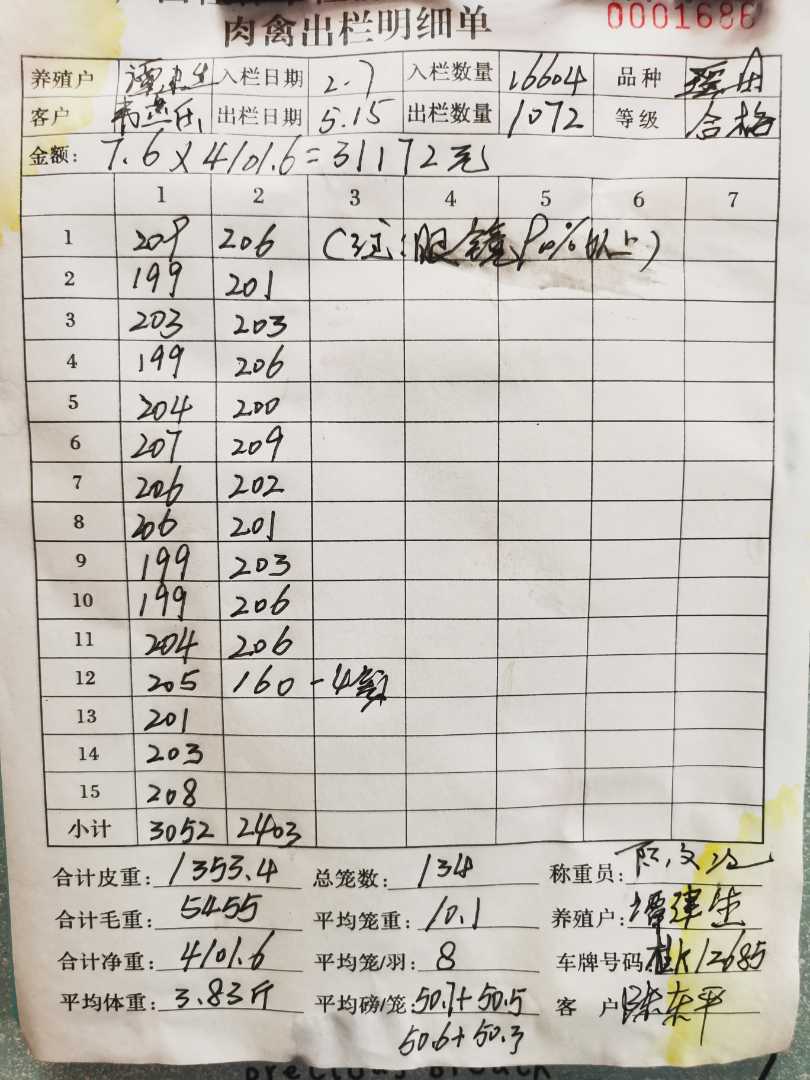 肉禽出栏明细单 0001686
养殖户 谭建生 入栏日期 2.7 入栏数量 16604 品种
客户 出栏日期 5.15 出栏数量 1072 等级 合格
金额: 7.6 X 4101.6 = 31172元
1 2 3 4 5 6 7
1 209 206 (注:眼镜90%以上)
2 199 201
3 203 203
4 199 206
5 204 200
6 207 209
7 206 202
8 206 201
9 199 203
10 199 206
11 204 206
12 205 160 -4
13 201
14 203
15 208
小计 3052 2403
合计皮重: 1353.4 总笼数: 134 称重员:
合计毛重: 5455 平均笼重: 10.1 养殖户: 谭建生
合计净重: 4101.6 平均笼/羽: 8 车牌号码: 桂K12685
平均体重: 3.83斤 平均磅/笼: 50.7+50.5 客户 陈东平
50.6+50.3
precious